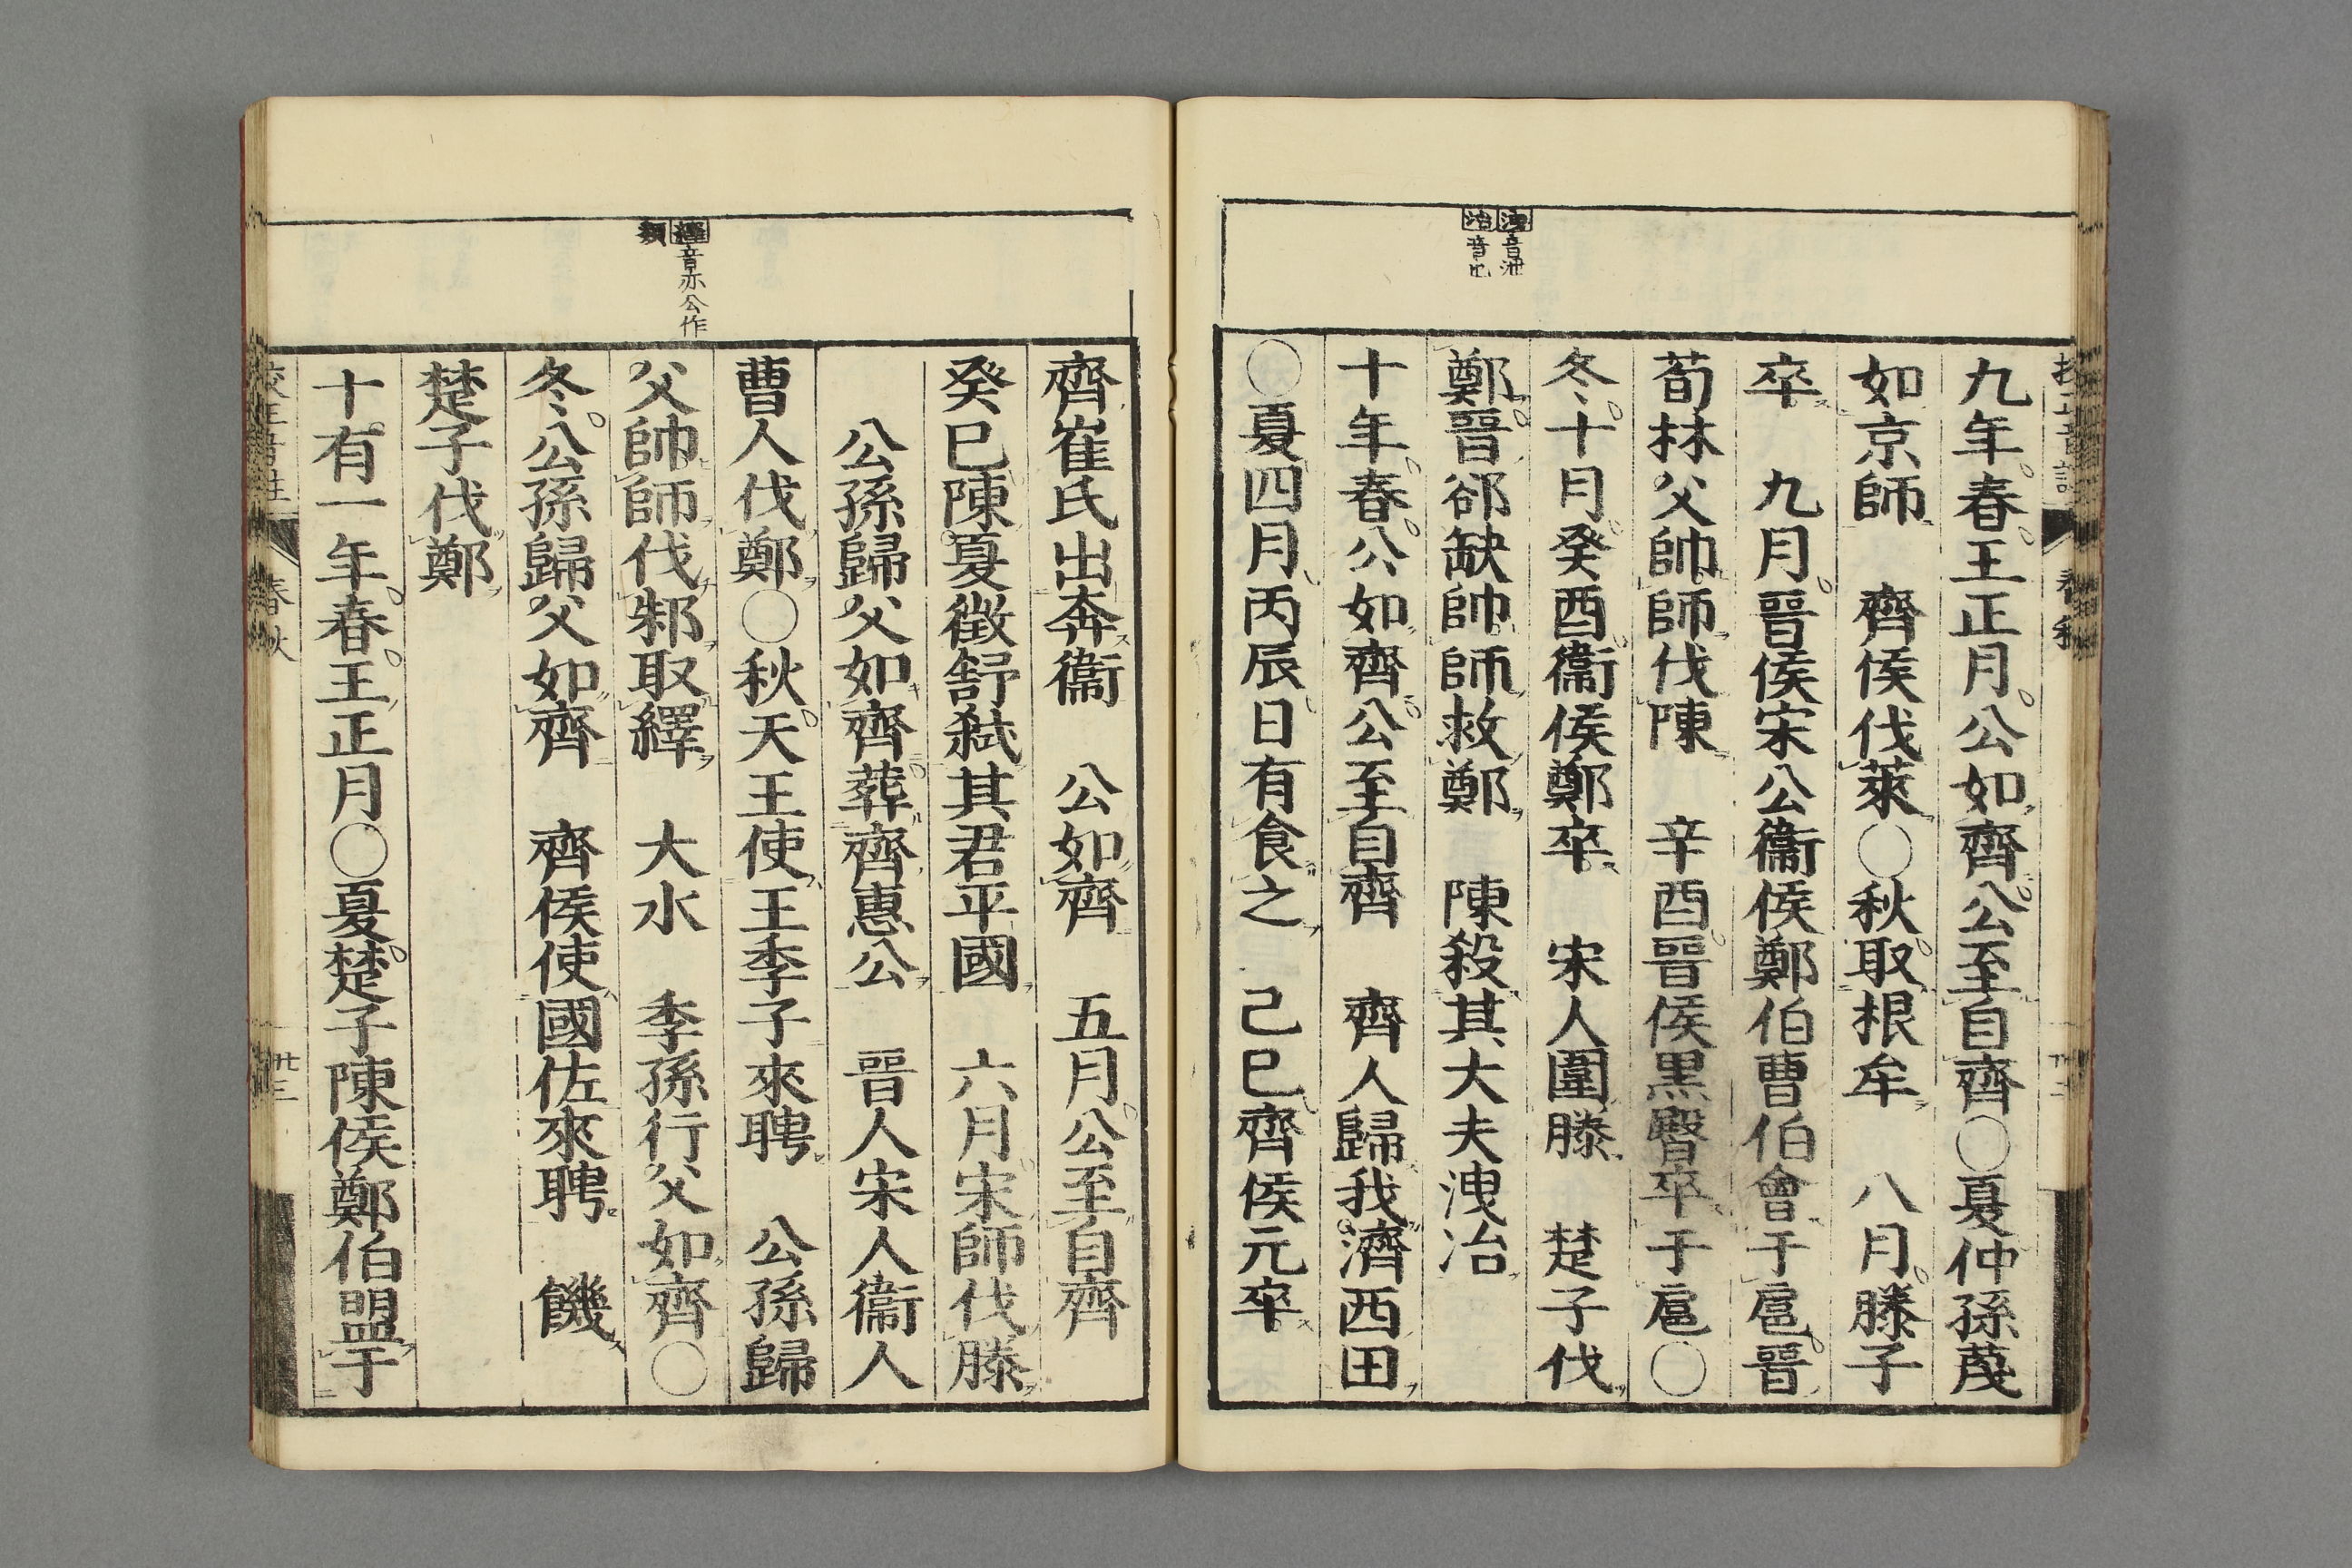 洩音泄
冶音也
九年春王正月公如齊公至自齊〇夏仲孫蔑
如京師　齊侯伐萊〇秋取根牟　八月滕子
卒　九月晉侯宋公衞侯鄭伯曹伯會于扈晉
荀林父帥師伐陳　辛酉晉侯黒臀卒于扈〇
冬十月癸酉衞侯鄭卒　宋人圍滕　楚子伐
鄭晉郤缺帥師救鄭　陳殺其大夫洩冶
十年春公如齊公至自齊　齊人歸我濟西田
〇夏四月丙辰日有食之　己巳齊侯元卒
繹音亦公作
齊崔氏出奔衞　公如齊　五月公至自齊
癸巳陳夏徵舒弑其君平國　六月宋師伐滕
公孫歸父如齊葬齊惠公　晉人宋人衞人
曹人伐鄭〇秋天王使王季子來聘　公孫歸
父帥師伐邾取繹　大水　季孫行父如齊〇
冬公孫歸父如齊　齊侯使國佐來聘　饑
楚子伐鄭
十有一年春王正月〇夏楚子陳侯鄭伯盟于
春秋
卅三